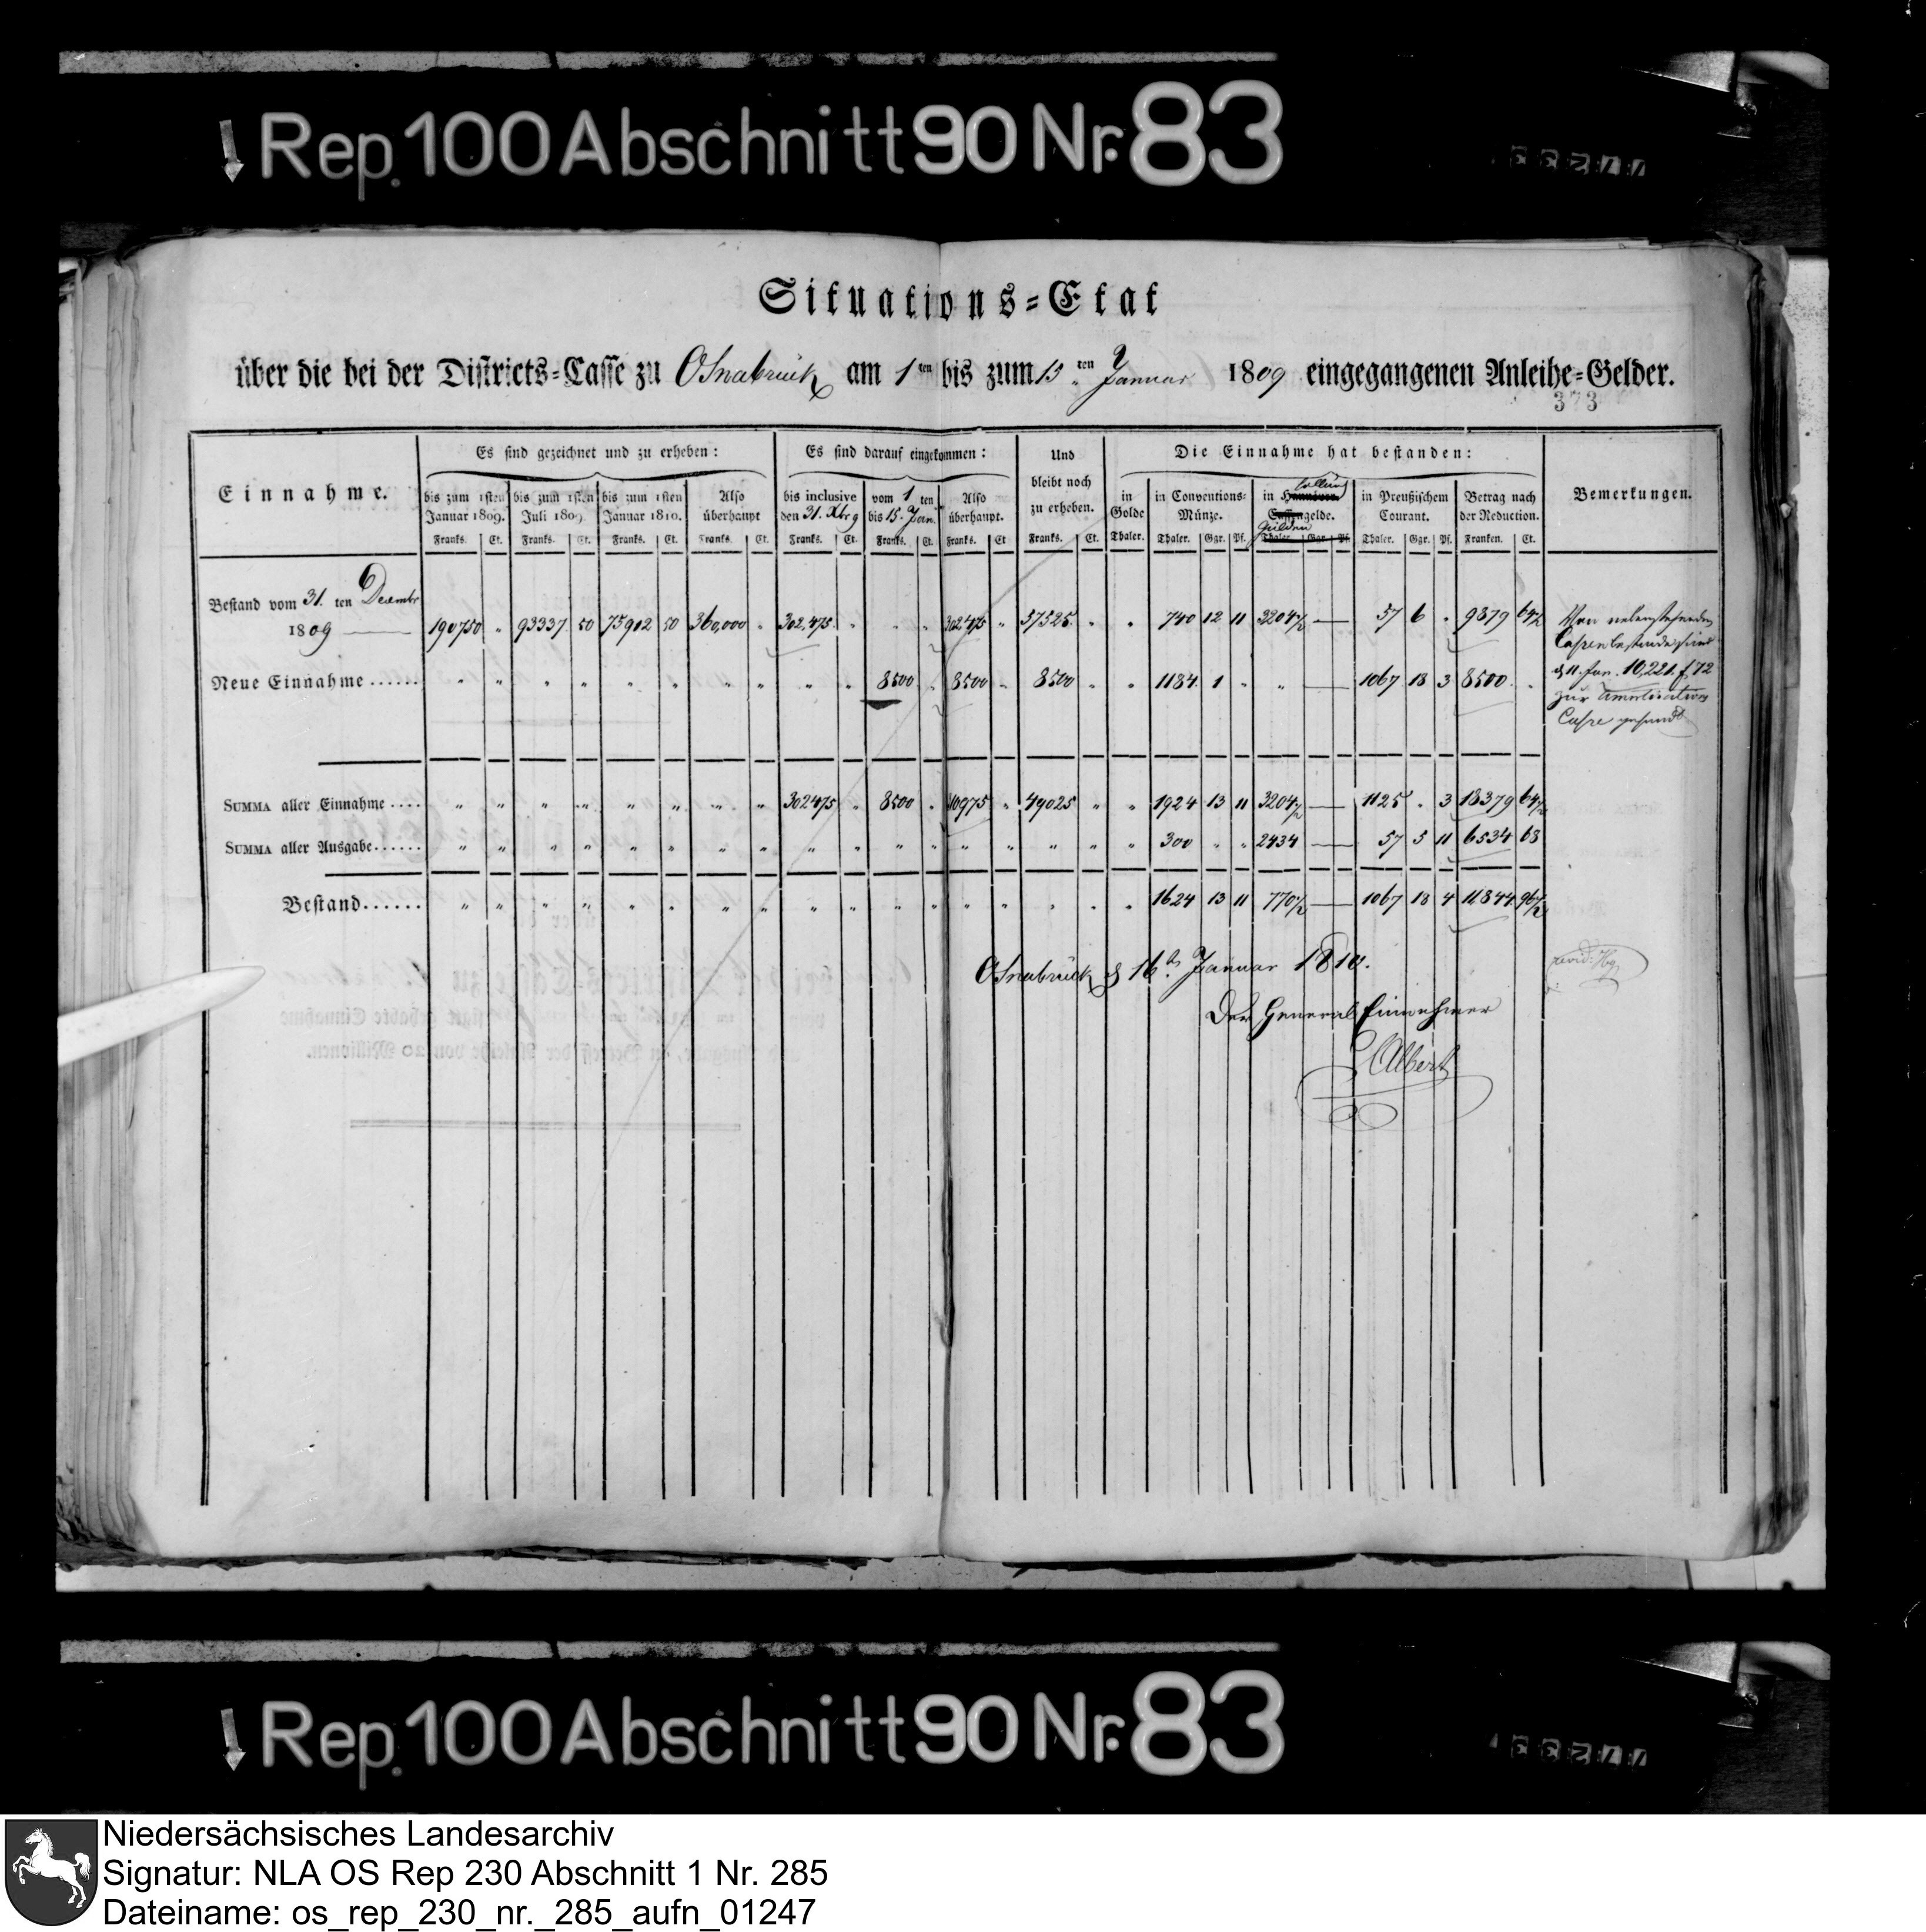 Rep. 100 Abschnitt 90 Nr. 83
Situations=Etat
über die bei der Districts=Casse zu Osnabrück am 1ten bis zum 15ten Januar 1809 eingegangenen Anleihe=Gelder.
373
Einnahme.
Es sind gezeichnet und zu erheben:
Es sind darauf eingekommen:
Und bleibt noch zu erheben.
Die Einnahme hat bestanden:
Bemerkungen.
bis zum 1sten Januar 1809.
bis zum 1sten Juli 1809
bis zum 1sten Januar 1810.
Also überhaupt
bis inclusive den 31. Xbr 9
vom 1 ten bis 15. Jan.
Also überhaupt.
in Golde
in Conventions=Münze.
in Hannöver. Cassengelde.
Gulden
in Preußischem Courant.
Betrag nach der Reduction.
Franks. Ct. Franks. Ct. Franks. Ct. Franks. Ct. Franks. Ct. Franks. Ct. Franks. Ct Franks. Ct. Thaler. Thaler. Ggr. Pf. Thaler. Ggr. Pf. Thaler. Ggr. Pf. Franken. Ct.
Bestand vom 31. ten Decembr
1809 190750 „ 93337 50 75902 50 360,000 „ 302,475 „ „ „ 302475 „ 57525 „ „ 740 12 11 3204½ — 57 6 „ 9879 64½
Neue Einnahme ...... „ „ „ „ „ „ „ „ „ „ 8500 „ 8500 „ 8500 „ „ 1184 1 „ „ — 1067 18 3 8500 „
Von nebenstehenden
Cassenbestande sind
d 11. Jan. 10,221. f 72
zur Amortisations
Casse gesandt
Summa aller Einnahme .... „ „ „ „ „ „ „ „ 302475 „ 8500 „ 310975 „ 49025 „ „ 1924 13 11 3204½ — 1125 „ 3 18379 64½
Summa aller Ausgabe...... „ „ „ „ „ „ „ „ „ „ „ „ „ „ „ „ „ 300 „ „ 2434 — 57 5 11 6534 68
Bestand...... „ „ „ „ „ „ „ „ „ „ „ „ „ „ „ „ „ 1624 13 11 770½ — 1067 18 4 11844 96½
Osnabrück d 16t. Januar 1810.
Der General Einnehmer
Albert
Rep. 100 Abschnitt 90 Nr. 83
Niedersächsisches Landesarchiv
Signatur: NLA OS Rep 230 Abschnitt 1 Nr. 285
Dateiname: os_rep_230_nr._285_aufn_01247